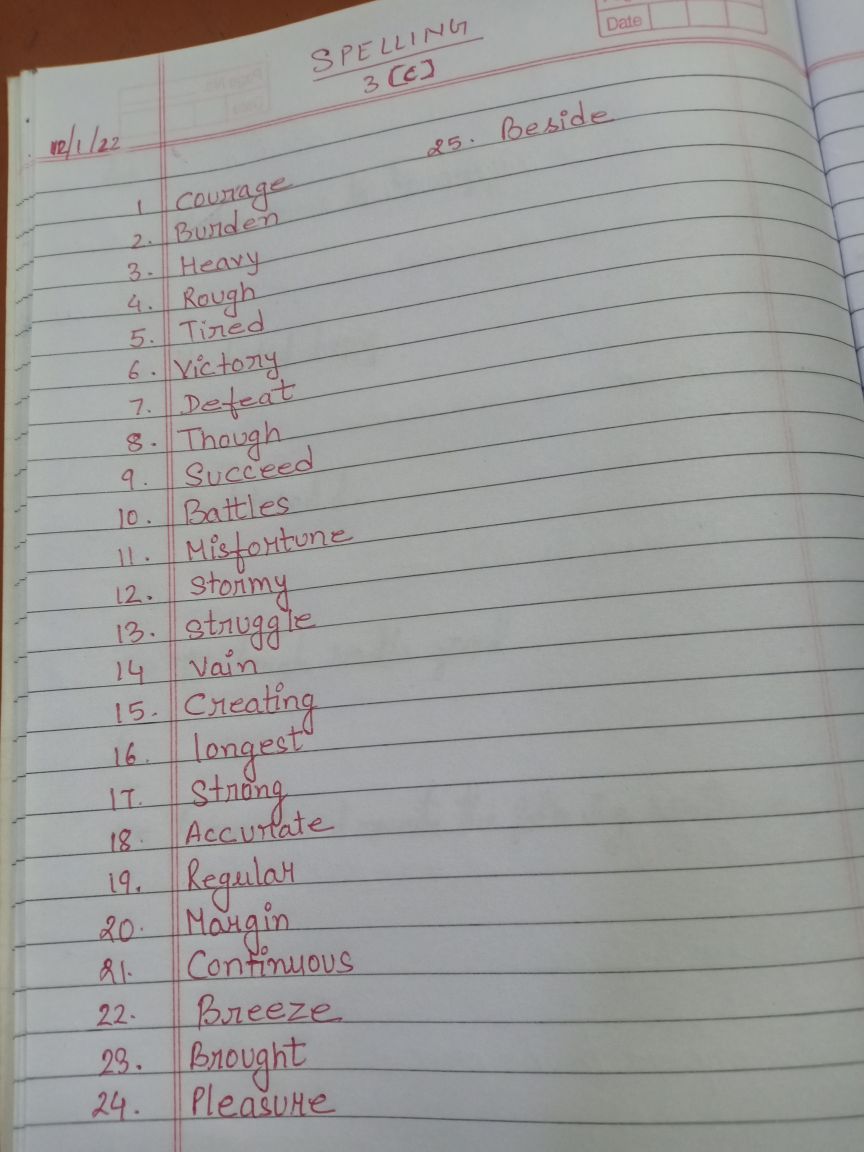 Date
SPELLING
3 [C]
12/1/22
25. Beside
1 Courage
2. Burden
3. Heavy
4. Rough
5. Tired
6. Victory
7. Defeat
8. Though
9. Succeed
10. Battles
11. Misfortune
12. Stormy
13. Struggle
14 Vain
15. Creating
16. longest
17. Strong
18. Accurate
19. Regular
20. Margin
21. Continuous
22. Breeze
23. Brought
24. Pleasure